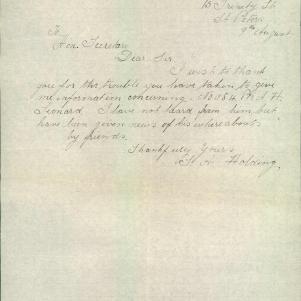 15 Trinity St
St Peters
9th August
To
Hon. Secretary
Dear Sir.
I wish to thank
you for the trouble you have taken to give
me information concerning H.
Leonard. I have not heard from him but
have been given news of his whereabouts
by friends.
Thankfully Yours
A. Holding.